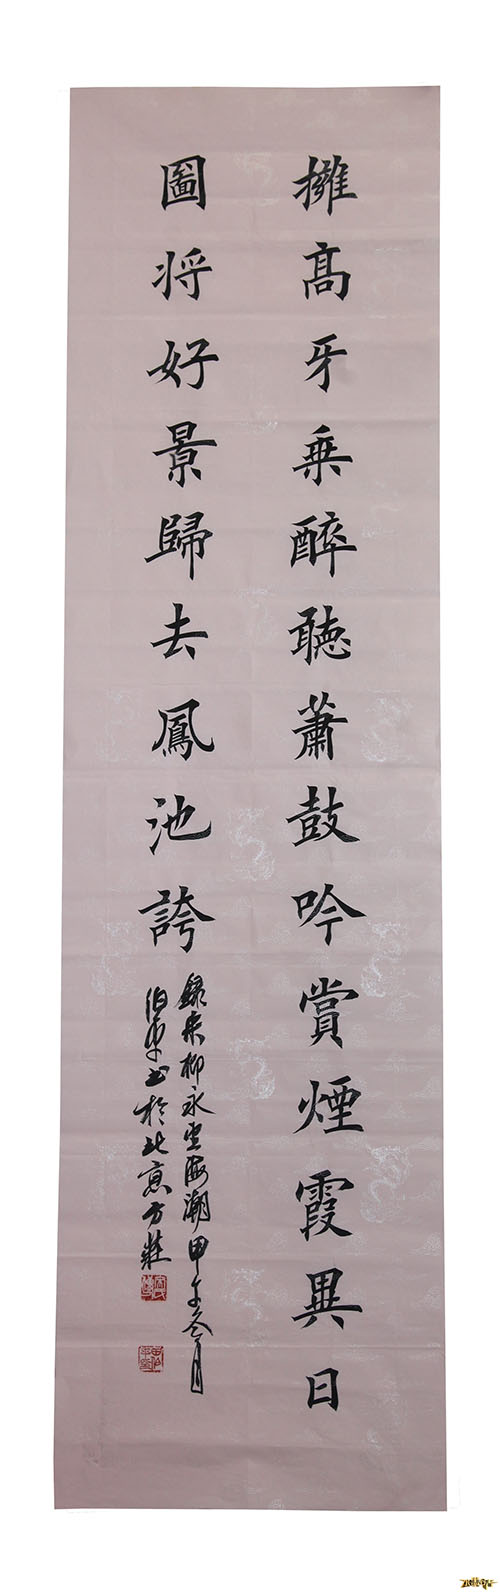 擁高牙乘醉聽蕭鼓吟賞煙霞異日
圖將好景歸去鳳池誇
錄宋柳永望海潮甲午冬月
伯年書於北京方莊